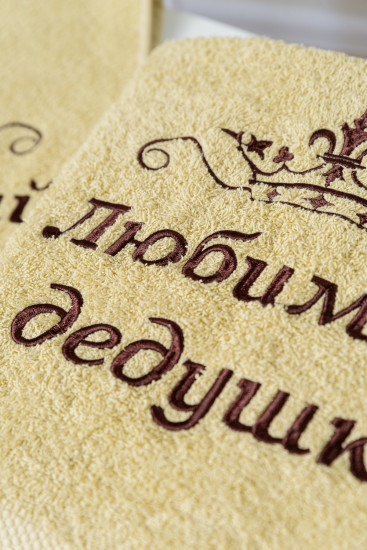 Любим
дедушк